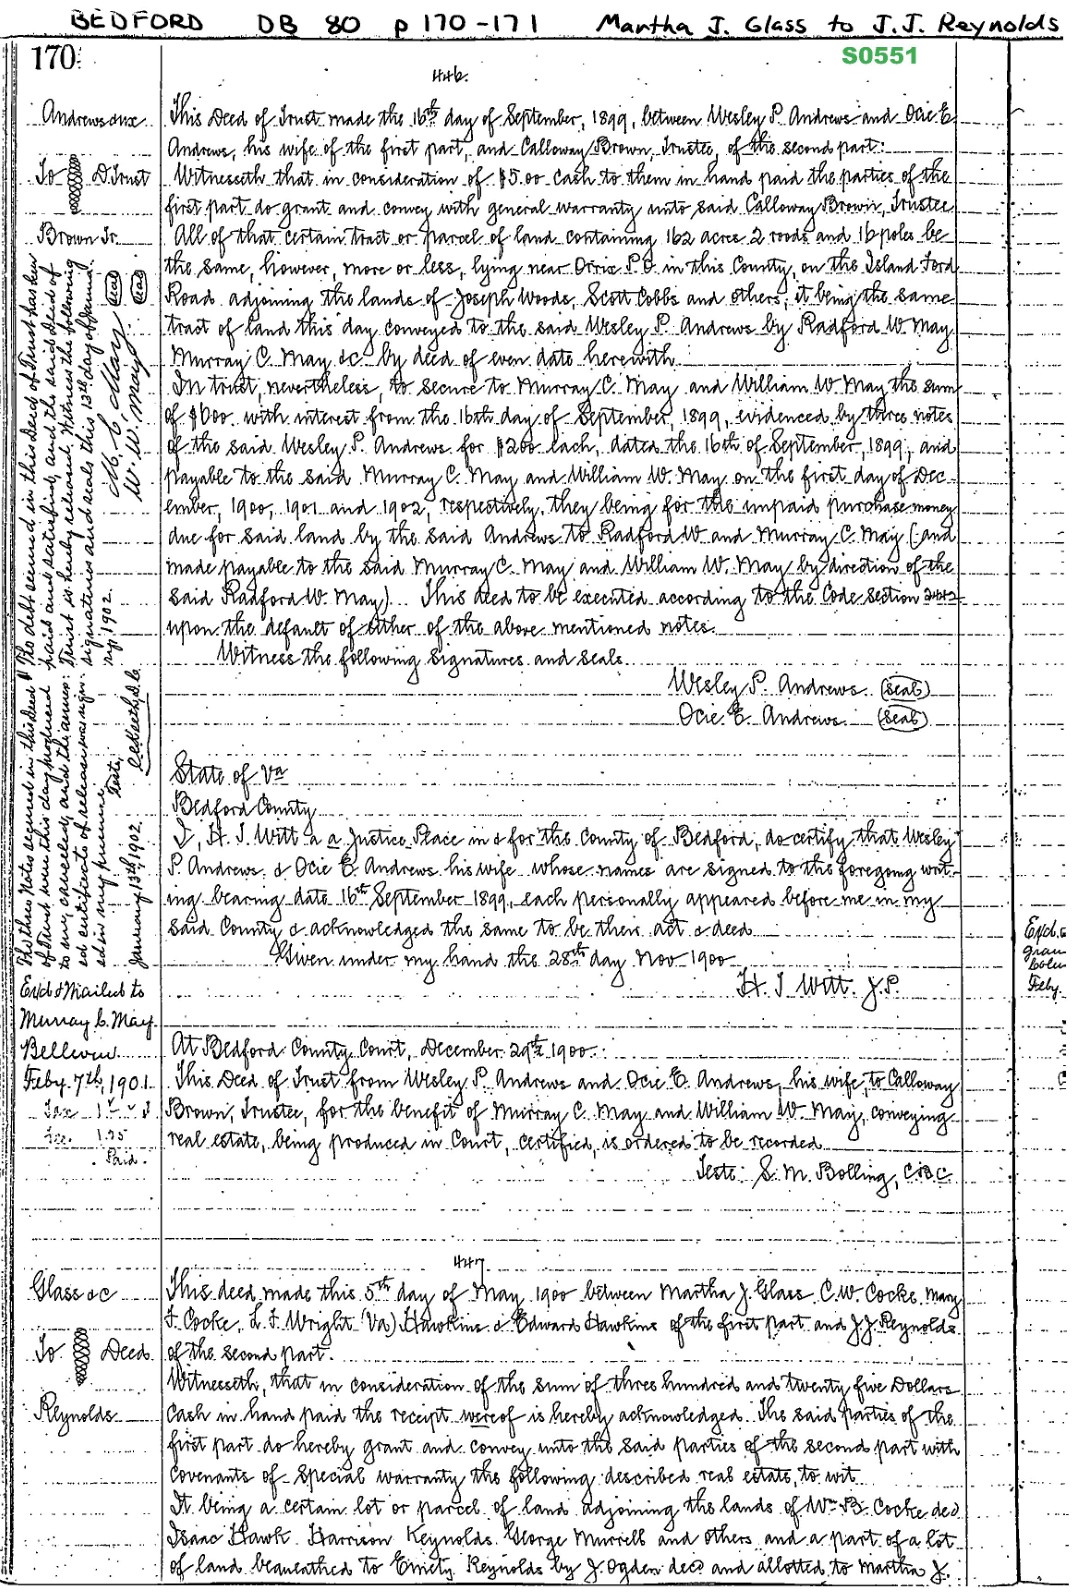 BEDFORD DB 80 p 170-171 Martha J. Glass to J.J. Reynolds
S0551
170
446.
Andrews &ux
To D Trust
Brown Tr.
This Deed of Trust made the 16th day of September, 1899, between Wesley P. Andrews and Ocie E
Andrews, his wife of the first part, and Calloway Brown, Trustee, of the second part:
Witnesseth that in consideration of $5.00 cash to them in hand paid the parties of the
first part do grant and convey with general warranty unto said Calloway Brown, Trustee
All of that certain tract or parcel of land containing 162 acres 2 roods and 16 poles be
the same, however, more or less, lying near Orrix P.O. in this County, on the Island Ford
Road adjoining the lands of Joseph Woods, Scott Cobbs and others; it being the same
tract of land this day conveyed to the said Wesley P. Andrews by Radford W. May
Murray C. May &c by deed of even date herewith.
In trust, nevertheless, to secure to Murray C. May and William W. May the sum
of $600 with interest from the 16th day of September, 1899, evidenced by three notes
of the said Wesley P. Andrews for $200 each, dated the 16th of September, 1899, and
payable to the said Murray C. May and William W. May on the first day of Dec-
ember, 1900, 1901 and 1902, respectively, they being for the unpaid purchase money
due for said land by the said Andrews to Radford W. and Murray C. May (and
made payable to the said Murray C. May and William W. May by direction of the
said Radford W. May). This deed to be executed according to the Code section 2442
upon the default of either of the above mentioned notes.
Witness the following signatures and seals
Wesley P. Andrews (seal)
Ocie E. Andrews (seal)
The debt secured in this deed of Trust has been
paid and satisfied, and the said deed of
Trust is hereby released, Witness the following
signatures and seals this 13th day of
1902.
M. C. May (seal)
W. W. May (seal)
The three Notes secured in this deed
of Trust were this day produced
to me cancelled, and the
ed certificate of release was sign-
ed in my presence
Teste,
January 13th, 1902.
State of Va
Bedford County
I, H. J. Witt a a Justice Place in & for the County of Bedford, do certify that Wesley
P. Andrews & Ocie E. Andrews his wife whose names are signed to the foregong writ-
ing bearing date 16th September 1899, each personally appeared before me in my
said County & acknowledged the same to be their act & deed
Given under my hand the 28th day Nov 1900
H. J Witt J.P.
Exd & Mailed to
Murray C. May
Bellevue
Feby. 7th, 1901
Tax
Fee. 1.75
Paid.
At Bedford County Court, December 29th 1900:
This Deed of Trust from Wesley P. Andrews and Ocie E. Andrews, his wife, to Calloway
Brown, Trustee, for the benefit of Murray C. May and William W. May, conveying
real estate, being produced in Court, certified, is ordered to be recorded
Teste: S. M. Bolling, C.B.C.
447
Glass &c
To Deed
Reynolds
This deed made this 5th day of May 1900 between Martha J. Glass C.W. Cocke, Mary
F. Cocke, L. F. Wright (Va) Hawkins & Edward Hawkins of the first part and J J Reynolds
of the second part.
Witnesseth, that in consideration of the sum of three hundred and twenty five Dollars
cash in hand paid the receipt wereof is hereby acknowledged. The said parties of the
first part do hereby grant and convey unto the said parties of the second part with
covenants of special warranty the following described real estate, to wit
It being a certain lot or parcel of land adjoining the lands of Wm B. Cocke decd
Isaac Hawk Harrison Reynolds George Murrell and others and a part of a lot
of land bequeathed to Emety Reynolds by J. Ogden decd and allotted to Martha J.
Exd.
Feby.